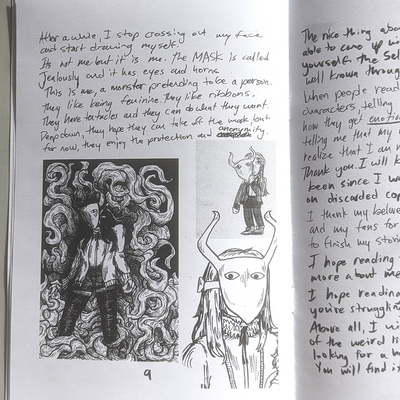 After a while, I stop crossing out my face
and start drawing myself.
Its not me but it is me. The MASK is called
Jealously and it has eyes and horns
This is me, a monster pretending to be a person.
They like being feminine. They like ribbons.
They have tentacles and they can do what they want.
Deep down, they hope they can take off the mask but
for now, they enjoy the protection and anonymity.
9
The nice thing abou
able to come up wi
yourself. The Sel
well known throug
When people read
characters, telling
how they get emotio
telling me that my
realize that I am n
Thank you. I will k
been since I wa
on discarded cop
I think my belove
and my fans for
to finish my stori
I hope reading
more about me
I hope reading
you're struggli
Above all, I wi
of the weird li
looking for a h
You will find it